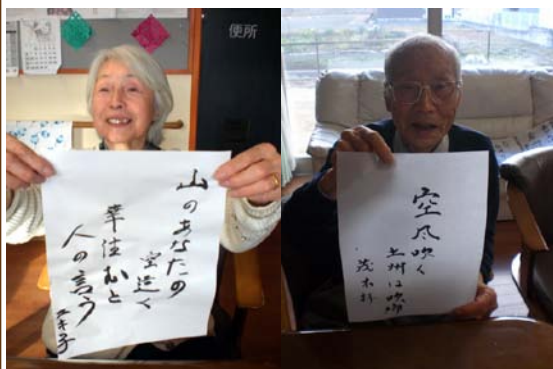 便所
山のあなたの
空遠く
幸住むと
人の言う
キ子
空風吹く
上州は吹
茂木